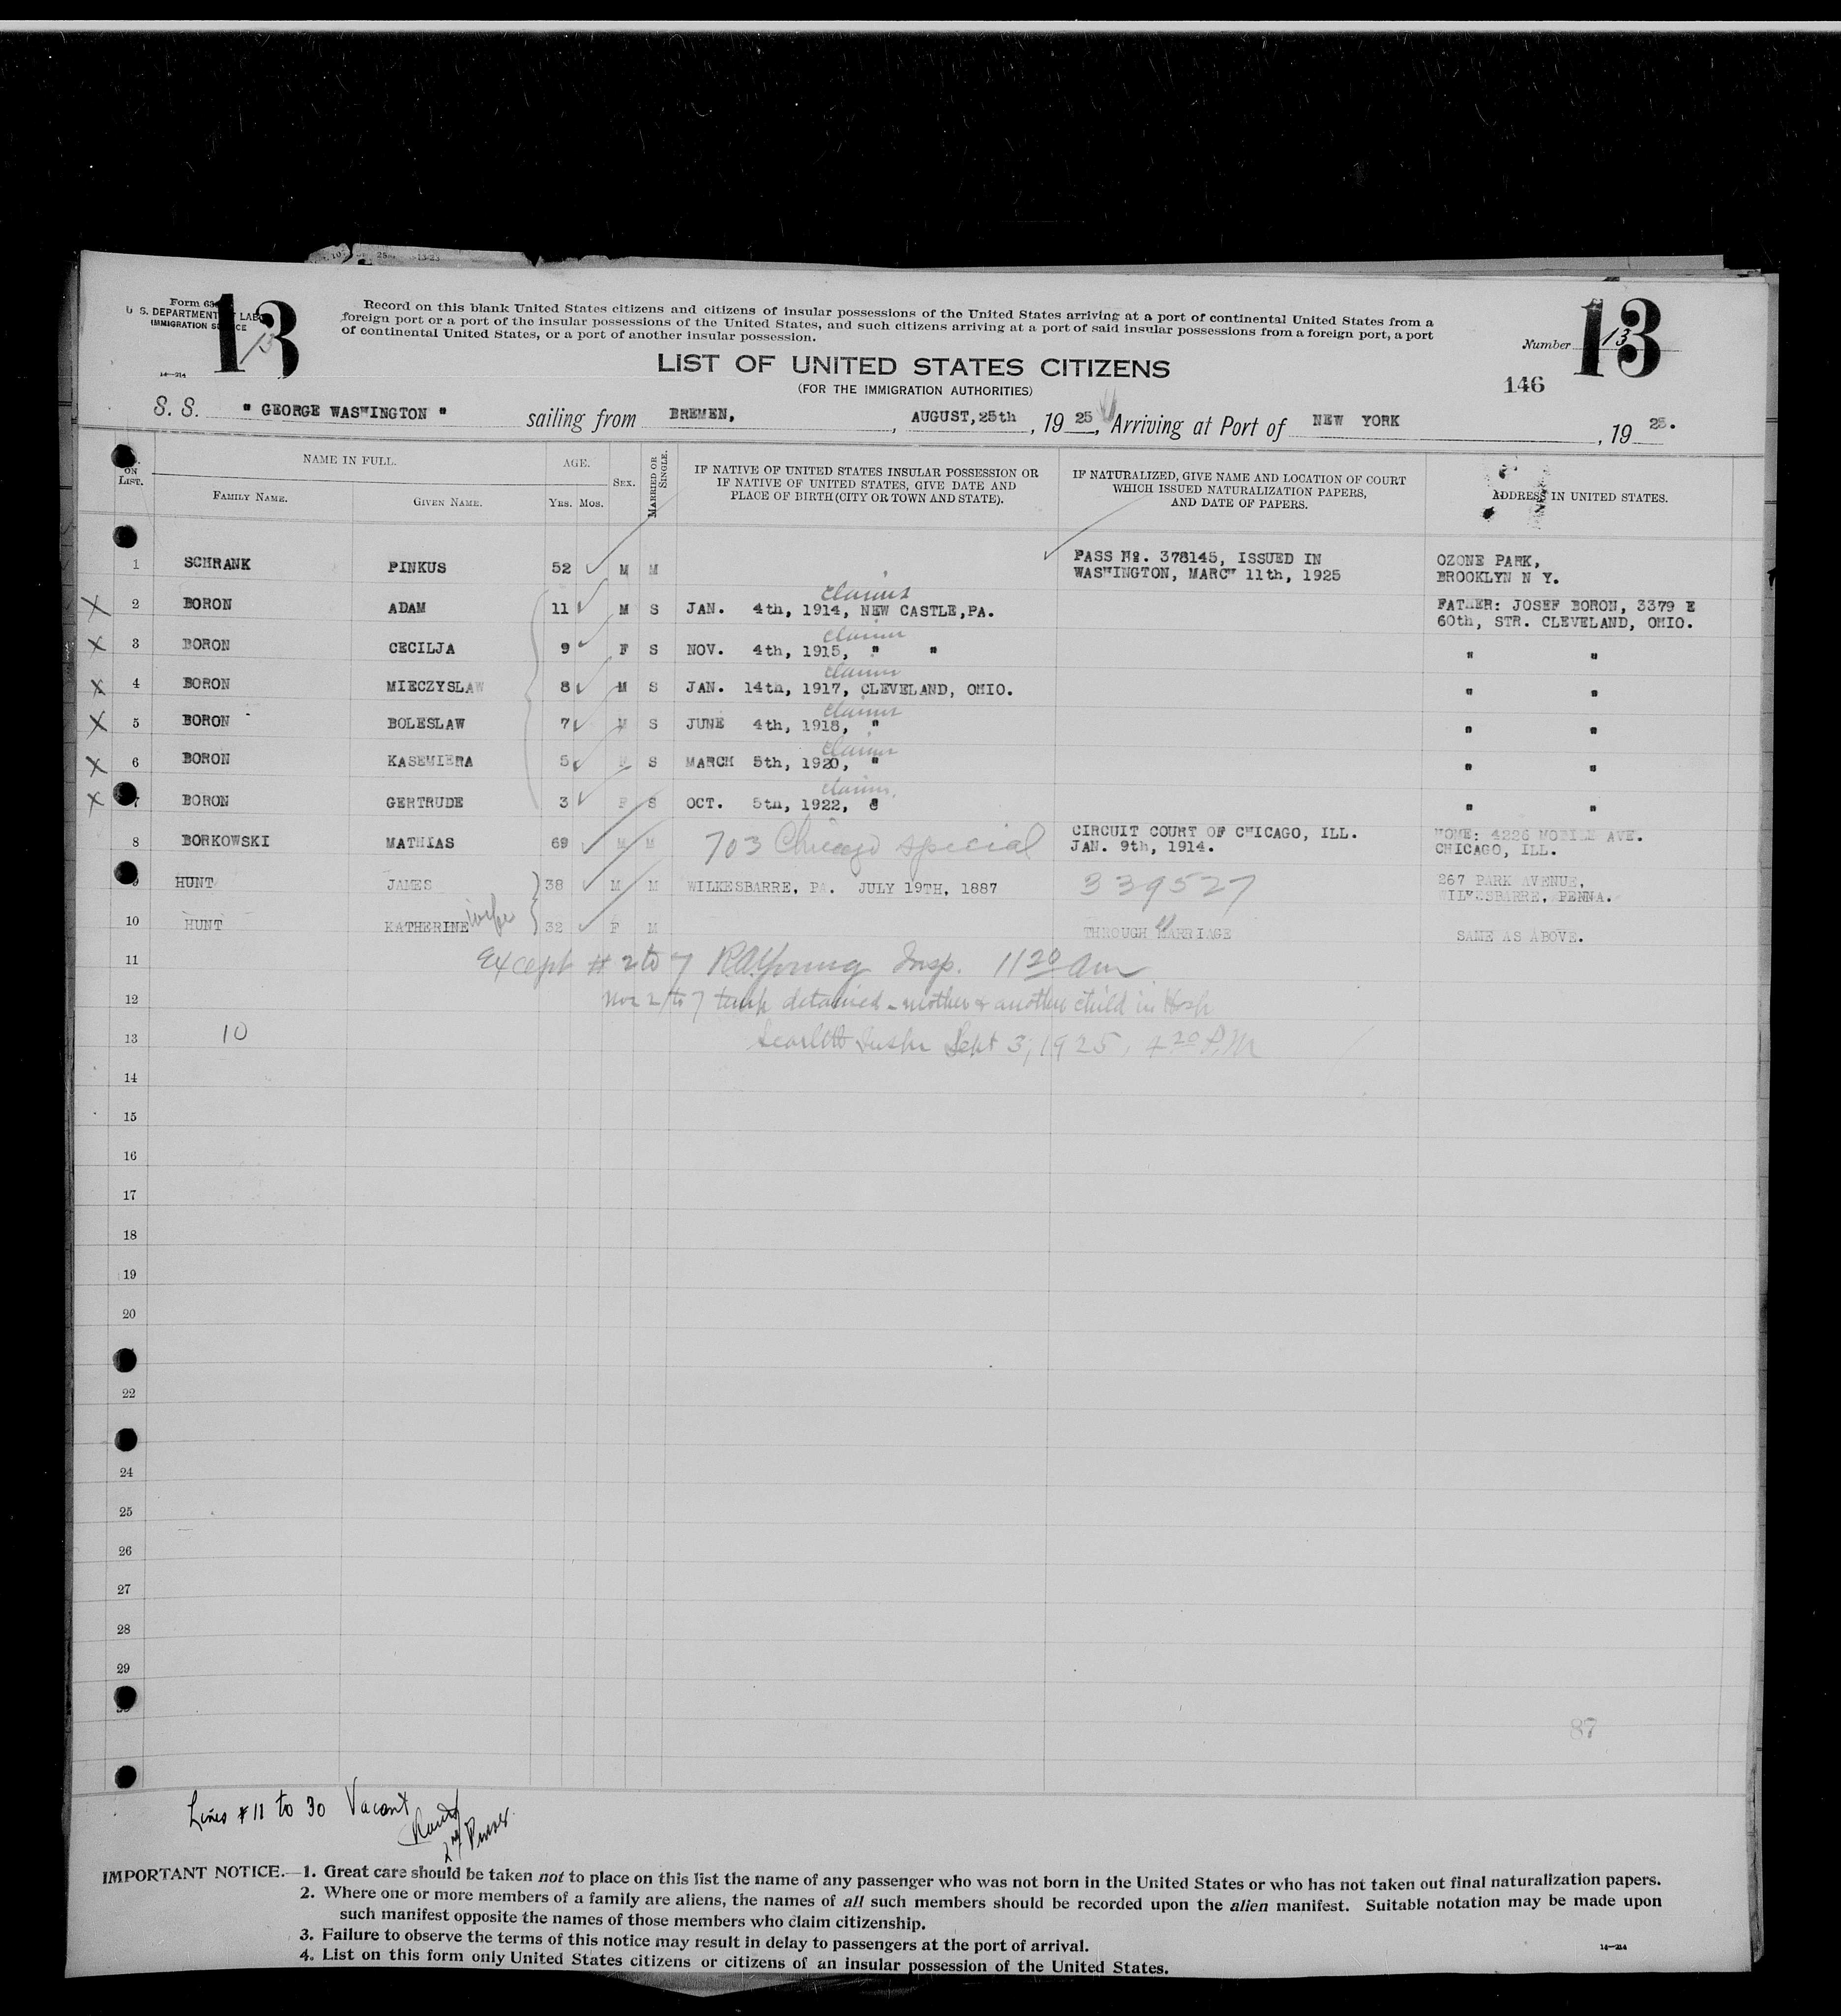 Form 63
U. S. DEPARTMENT OF LABOR
IMMIGRATION SERVICE
13
13
14—214
Record on this blank United States citizens and citizens of insular possessions of the United States arriving at a port of continental United States from a
foreign port or a port of the insular possessions of the United States, and such citizens arriving at a port of said insular possessions from a foreign port, a port
of continental United States, or a port of another insular possession.
LIST OF UNITED STATES CITIZENS
(FOR THE IMMIGRATION AUTHORITIES)
Number 13
13
146
S. S. " GEORGE WASHINGTON " sailing from BREMEN, , AUGUST, 25th , 19 25, Arriving at Port of NEW YORK , 19 25.
No. ON LIST. NAME IN FULL. AGE. SEX. MARRIED OR SINGLE. IF NATIVE OF UNITED STATES INSULAR POSSESSION OR IF NATIVE OF UNITED STATES, GIVE DATE AND PLACE OF BIRTH (CITY OR TOWN AND STATE). IF NATURALIZED, GIVE NAME AND LOCATION OF COURT WHICH ISSUED NATURALIZATION PAPERS, AND DATE OF PAPERS. ADDRESS IN UNITED STATES.
FAMILY NAME. GIVEN NAME. YRS. MOS.
1 SCHRANK PINKUS 52 M M PASS No. 378145, ISSUED IN WASHINGTON, MARCH 11th, 1925 OZONE PARK, BROOKLYN N Y.
claims
X 2 BORON ADAM 11 M S JAN. 4th, 1914, NEW CASTLE, PA. FATHER: JOSEF BORON, 3379 E 60th, STR. CLEVELAND, OHIO.
claims
X 3 BORON CECILJA 9 F S NOV. 4th, 1915, " " " "
claims
X 4 BORON MIECZYSLAW 8 M S JAN. 14th, 1917, CLEVELAND, OHIO. " "
claims
X 5 BORON BOLESLAW 7 M S JUNE 4th, 1918, " " "
claims
X 6 BORON KASEMIERA 5 F S MARCH 5th, 1920, " " "
claims
X 7 BORON GERTRUDE 3 F S OCT. 5th, 1922, " " "
8 BORKOWSKI MATHIAS 69 M M 703 Chicago special CIRCUIT COURT OF CHICAGO, ILL. JAN. 9th, 1914. HOME: 4226 MOBILE AVE. CHICAGO, ILL.
9 HUNT JAMES 38 M M WILKESBARRE, PA. JULY 19TH, 1887 339527 267 PARK AVENUE, WILKESBARRE, PENNA.
10 HUNT KATHERINE wife 32 F M THROUGH MARRIAGE SAME AS ABOVE.
11 Except # 2 to 7 R.A. Young Insp. 11 20 am
12 Nos 2 to 7 temp detained - mother & another child in Hosp
13 10 Scarlett Insp Sept 3, 1925, 4 20 P.M.
14
15
16
17
18
19
20
22
24
25
26
27
28
29
87
Lines # 11 to 30 Vacant
2nd Purser
IMPORTANT NOTICE.—1. Great care should be taken not to place on this list the name of any passenger who was not born in the United States or who has not taken out final naturalization papers.
2. Where one or more members of a family are aliens, the names of all such members should be recorded upon the alien manifest. Suitable notation may be made upon
such manifest opposite the names of those members who claim citizenship.
3. Failure to observe the terms of this notice may result in delay to passengers at the port of arrival.
4. List on this form only United States citizens or citizens of an insular possession of the United States.
14—214